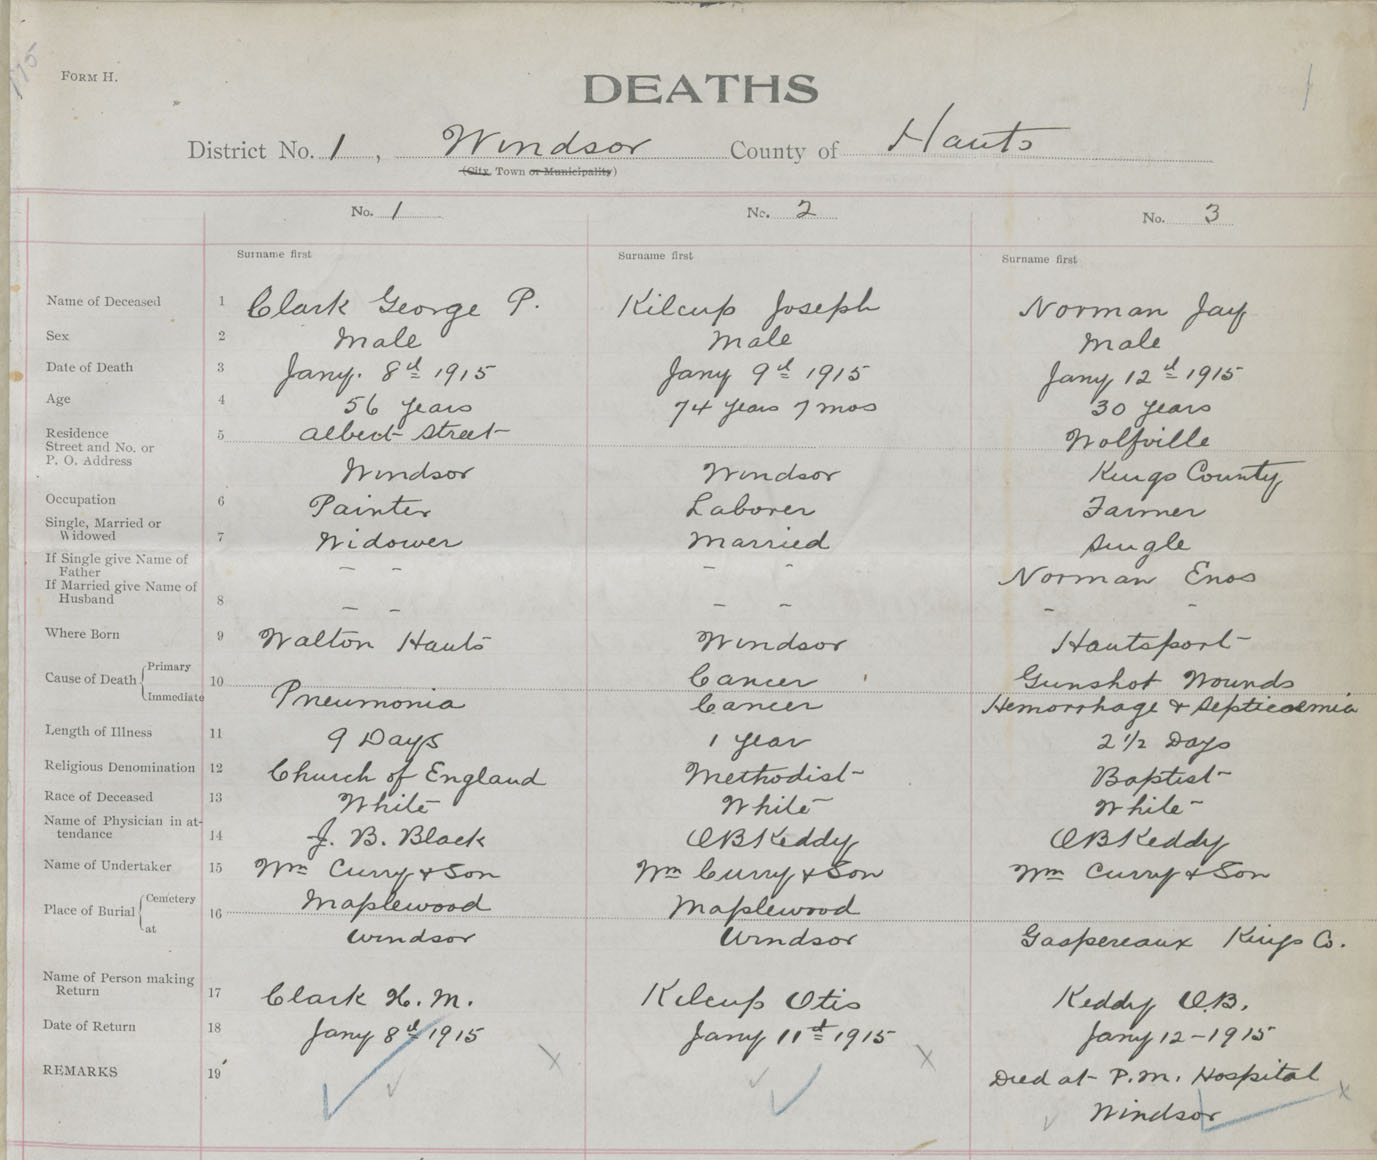 FORM H.
DEATHS
District No. 1, Windsor County of Hants
(City, Town or Municipality)
No. 1 No. 2 No. 3
Surname first Surname first Surname first
Name of Deceased 1 Clark George P. Kilcup Joseph Norman Jay
Sex 2 Male Male Male
Date of Death 3 Jany. 8d 1915 Jany 9d 1915 Jany 12d 1915
Age 4 56 Years 74 Years 7 mos 30 Years
Residence Street and No. or P. O. Address 5 Albert Street Wolfville
Windsor Windsor Kings County
Occupation 6 Painter Laborer Farmer
Single, Married or Widowed 7 Widower Married Single
If Single give Name of Father – – – – Norman Enos
If Married give Name of Husband 8 – – – – – –
Where Born 9 Walton Hants Windsor Hantsport
Cause of Death Primary 10 Cancer Gunshot Wounds
Immediate Pneumonia Cancer Hemorrhage & Septicaemia
Length of Illness 11 9 Days 1 Year 2 1/2 Days
Religious Denomination 12 Church of England Methodist Baptist
Race of Deceased 13 White White White
Name of Physician in attendance 14 J. B. Black O B Keddy O B Keddy
Name of Undertaker 15 Wm Curry & Son Wm Curry & Son Wm Curry & Son
Place of Burial Cemetery 16 Maplewood Maplewood
at Windsor Windsor Gaspereaux Kings Co.
Name of Person making Return 17 Clark H. M. Kilcup Otis Keddy O.B.
Date of Return 18 Jany 8d 1915 Jany 11d 1915 Jany 12-1915
REMARKS 19 Died at P.M. Hospital
Windsor